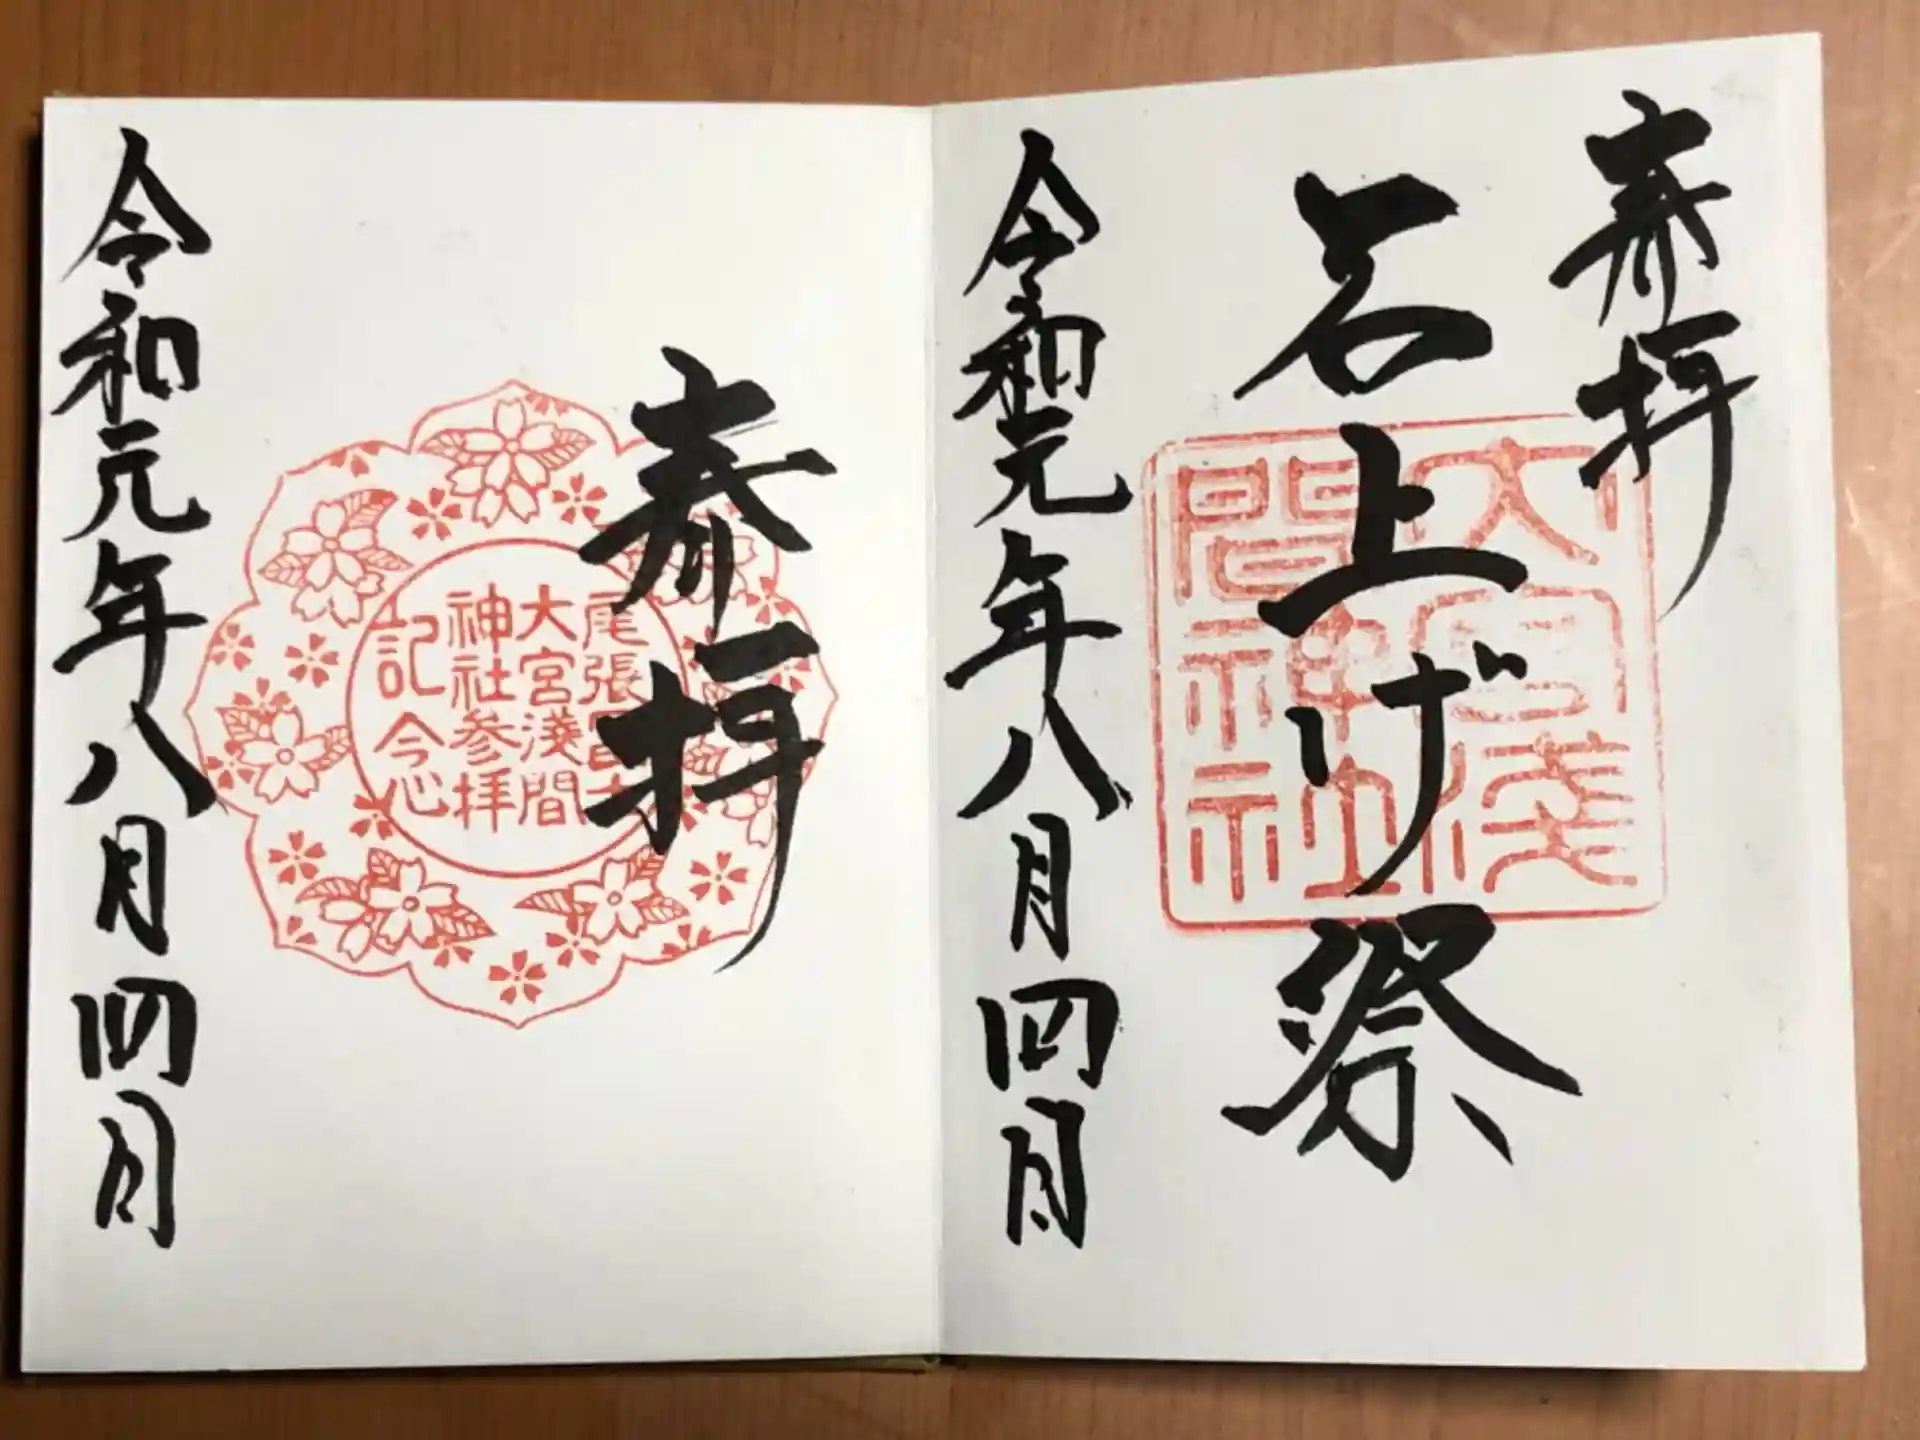 奉拝
石上げ祭
大宮淺
間神社
令和元年八月四日
奉拝
尾張富士
大宮淺間
神社参拝
記念
令和元年八月四日